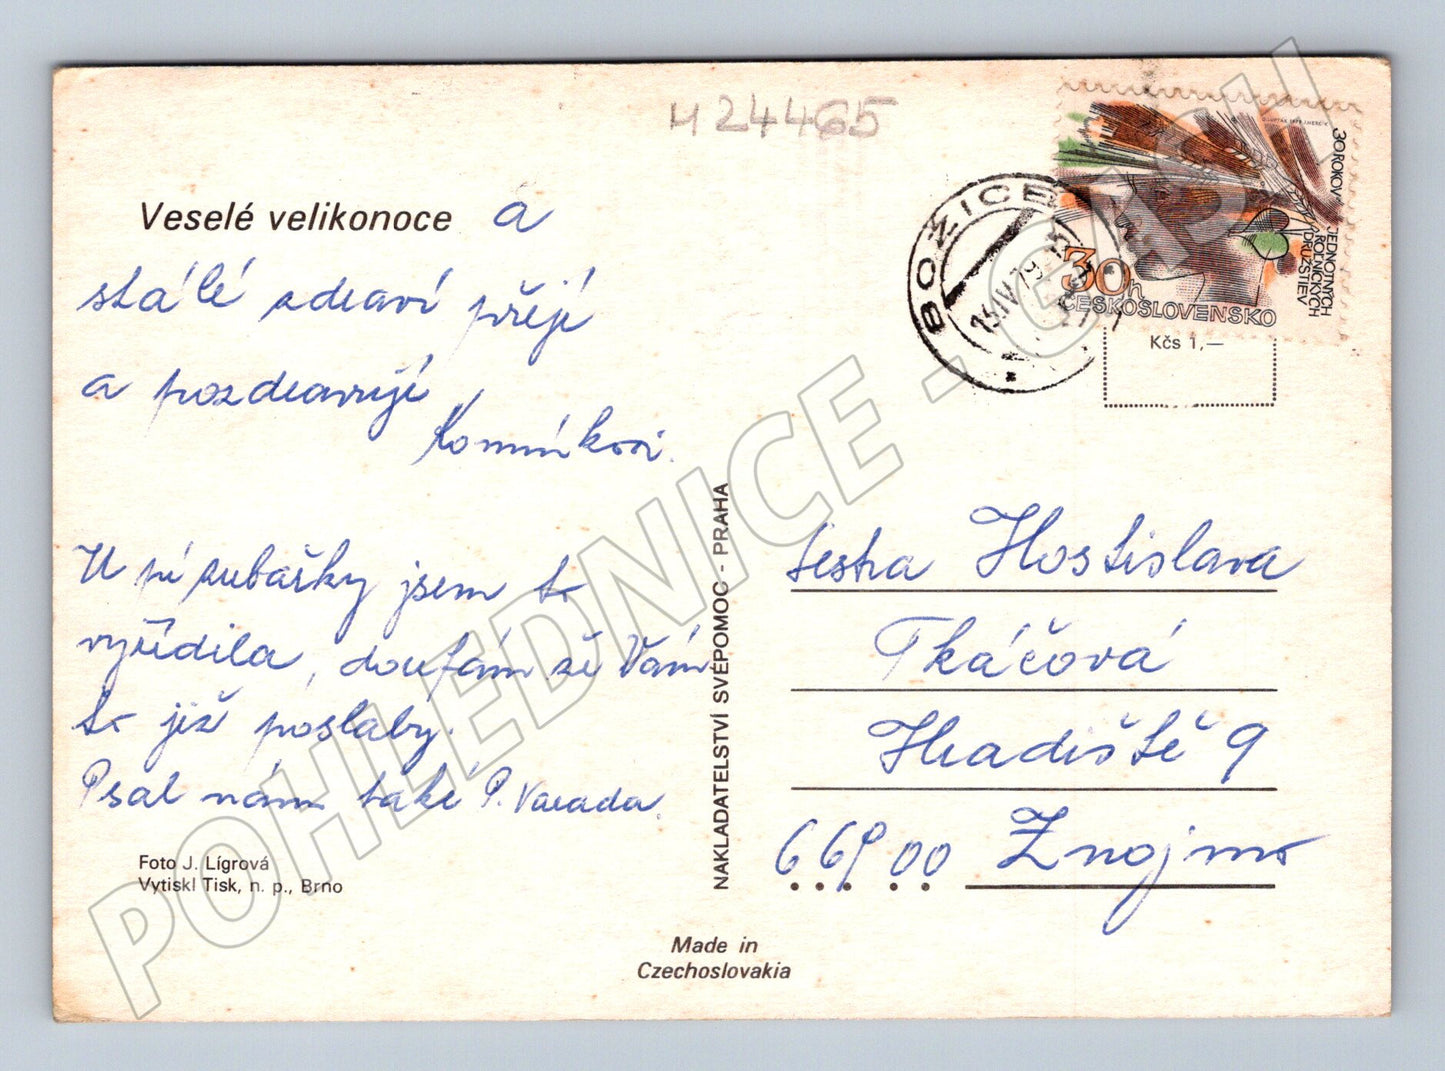 H 24465
Veselé velikonoce a
stálé zdraví přejí
a pozdravují
Komínkovi.
U pí zubařky jsem to
vyřídila, doufám že Vám
to již poslaby.
Psal nám také P. Varada.
Foto J. Lígrová
Vytiskl Tisk, n. p., Brno
NAKLADATELSTVÍ SVÉPOMOC - PRAHA
Made in
Czechoslovakia
BOŽICE
13.IV.79
30 ROKOV
JEDNOTNÝCH
ROĽNÍCKYCH
DRUŽSTIEV
30h
ČESKOSLOVENSKO
Kčs 1,—
sestra Hostislava
Tkáčová
Hradiště 9
669 00 Znojmo
POHLEDNICE - CASH